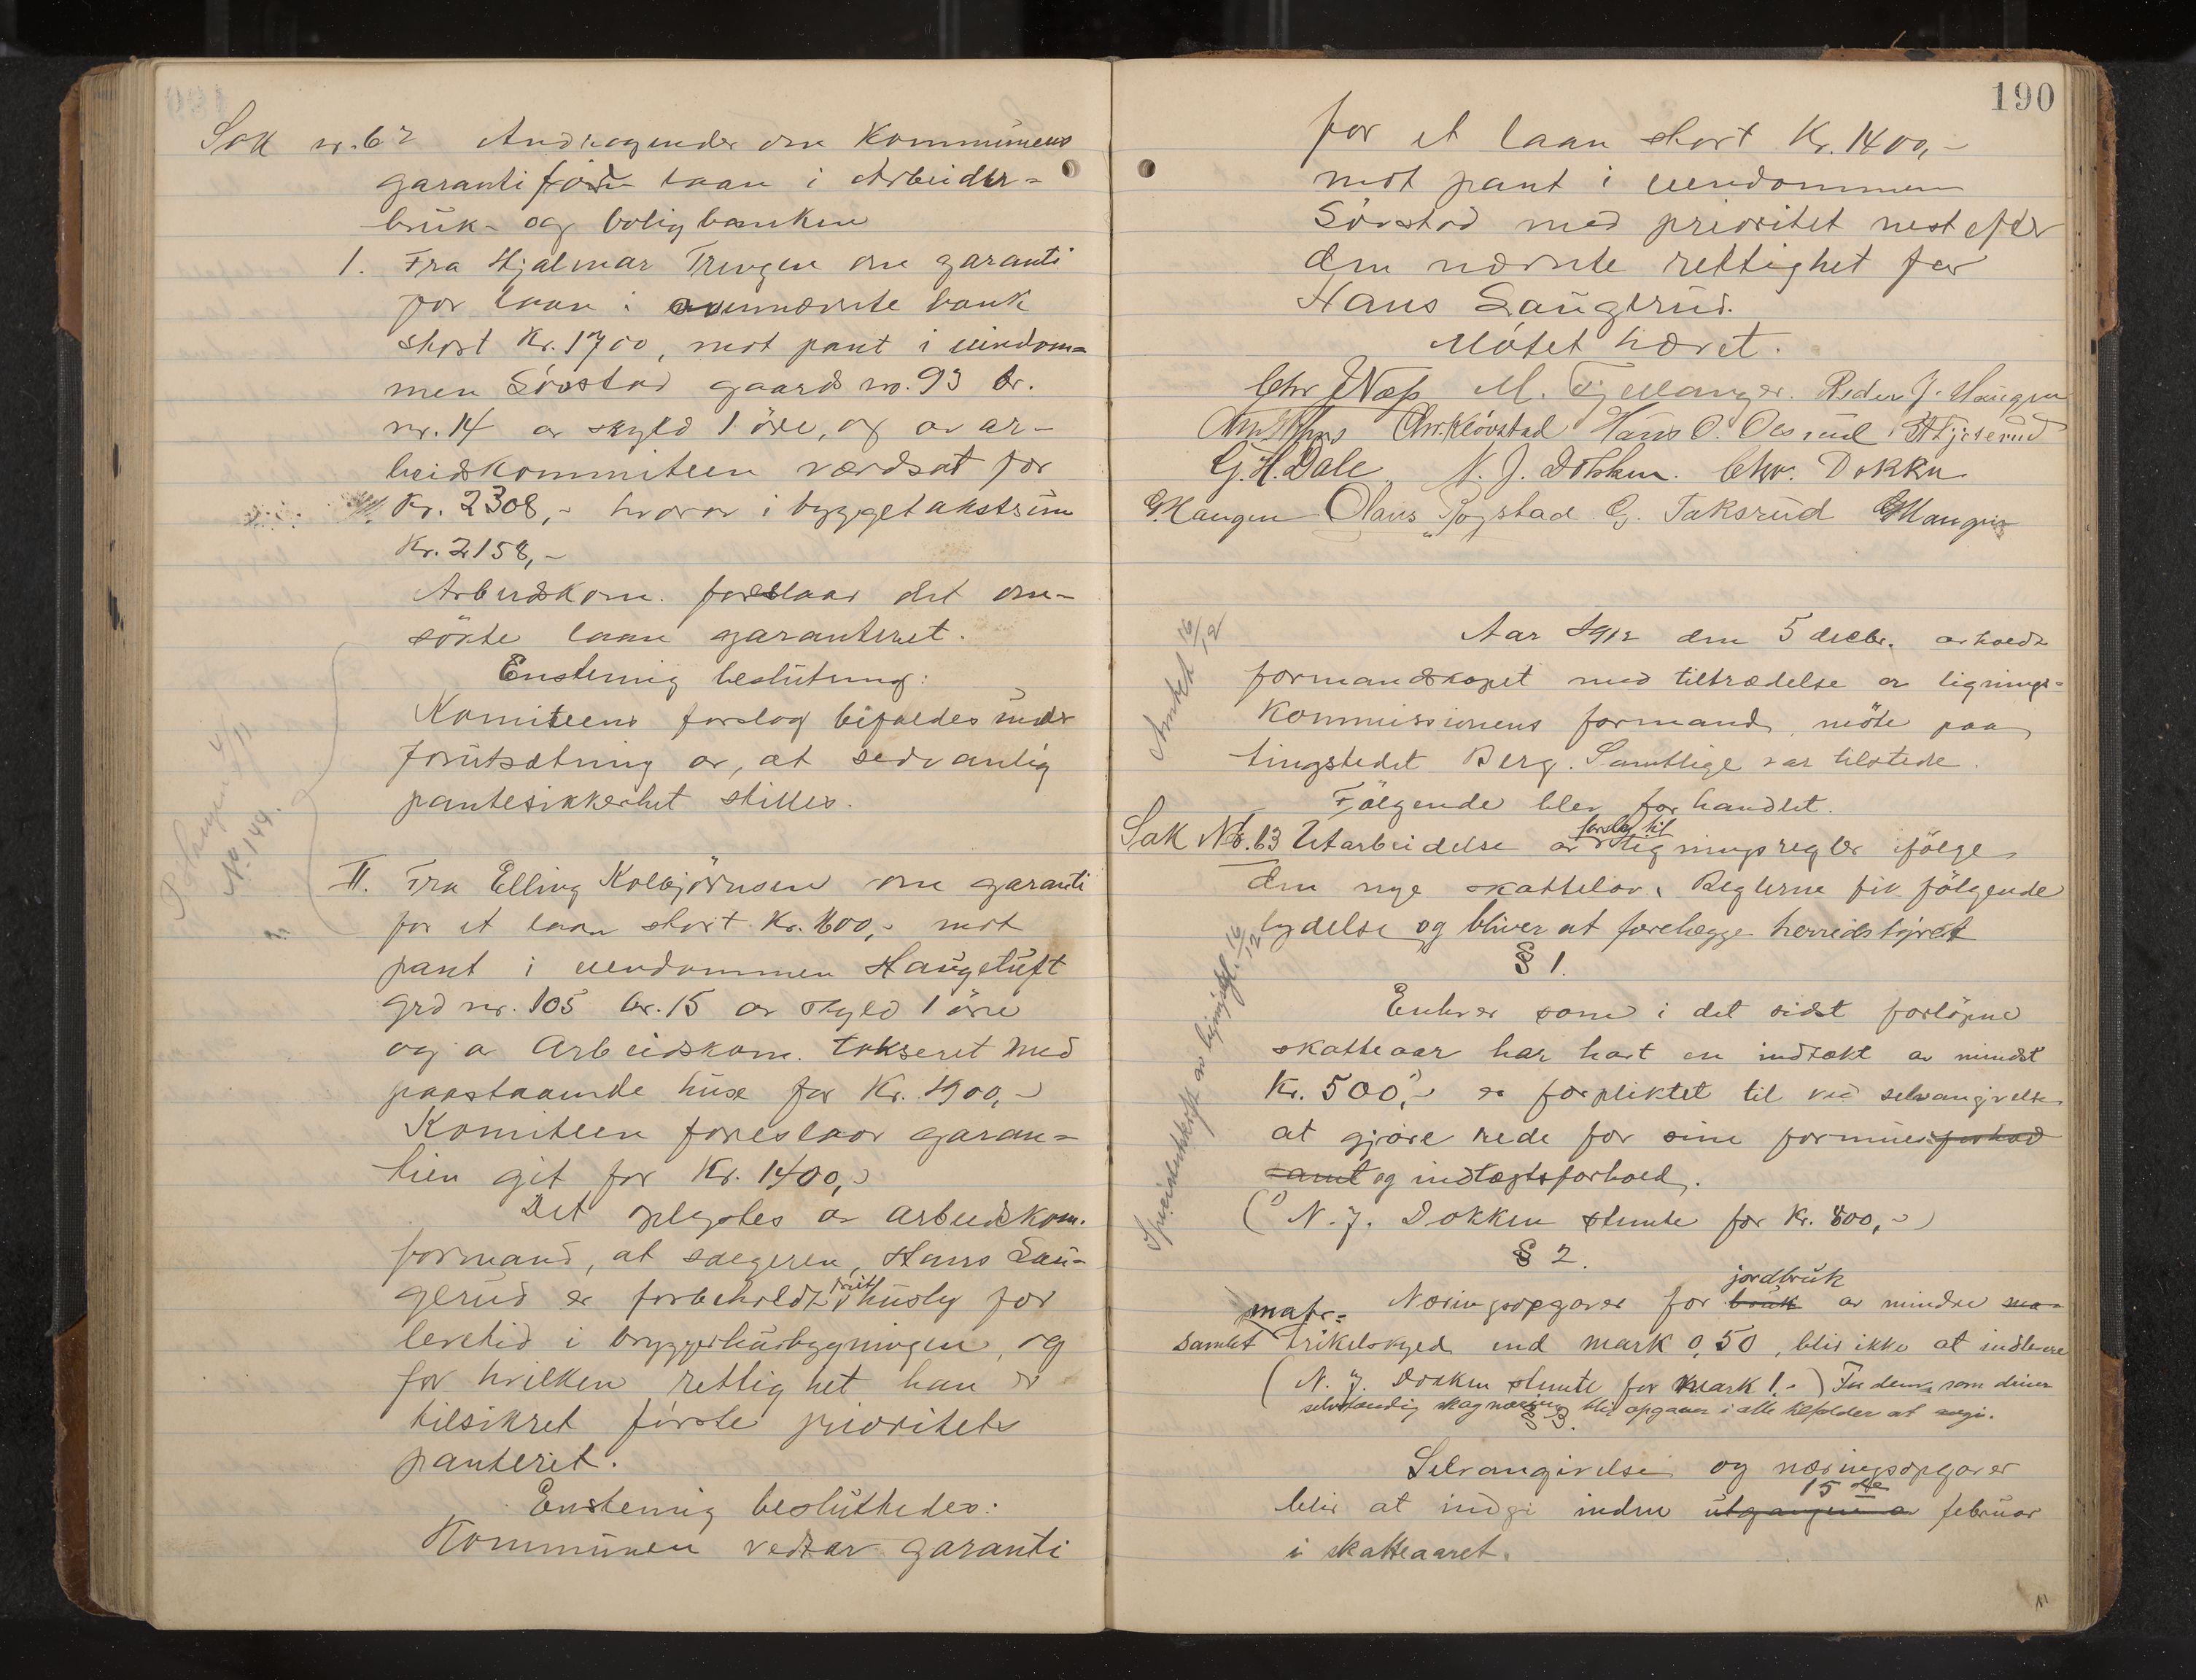 Sak nr. 62 Andragender om Kommunens
garanti for laan i Arbeider-
bruk- og boligbanken
1. Fra Hjalmar Trengen om garanti
for laan i ovennævnte bank
stort Kr. 1700, mot pant i eiendom-
men Lövstad gaards no. 93 br.
nr. 14 av skyld 1 öre, og av ar-
beidskommiteen værdsat for
Kr. 2308,- hvorav i byggetakstsum
Kr. 2158,-
Arbeidskom. foreslaar det om-
sökte laan garanteret.
Enstemig beslutning:
Komiteens forslag bifaldes under
forutsætning av, at sedvanlig
pantesikkerhet stilles.
4/11
No. 144.
II. Fra Elling Kolbjörnsen om garanti
for et laan stort Kr. 1600,- mot
pant i eiendommen Haugetuft
grd nr. 105 br. 15 av skyld 1 öre
og av Arbeidskom. takseret med
paastaaende huse for Kr. 1900,-
Komiteen foreslaar garan-
tien git for Kr. 1400,-
Det oplystes av arbeidskom.
formand, at sælgeren, Hans Lau-
gerud er forbeholdt frit husly for
levetid i bryggerhusbygningen, og
for hvilken rettighet han er
tilsikret förste prioritets
panteret.
Enstemig besluttedes:
Kommunen vedtar garanti
190
for et laan stort Kr. 1400,-
mot pant i eiendommen
Lövstad med prioritet nest efter
den nævnte rettighet for
Hans Laugerud.
Mötet hævet.
Chr Næss M. Tj. Manger. Peder J. Haugen
Chr. Klövstad Hans O. Aasrud
G. H. Dale N. J. Dokken. Chr. Dokken
G. Haugen Olaus Rogstad G. Taksrud G Haugen
Aar 1912 den 5 decbr. avholdt
formandskapet med tiltrædelse av lignings-
kommissionens formand, möte paa
tingstedet Berg. Samtlige var tilstede.
Fölgende blev forhandlet.
Amtet 16/12
Sak Nr. 63 Utarbeidelse av forslag til ligningsregler ifölge
den nye skattelov. Reglerne fik fölgende
lydelse og bliver at forelægge herredstyret
§ 1.
Enhver som i det sidst forlöpne
skatteaar har havt en indtækt av mindst
Kr. 500,- 1) er forpliktet til ved selvangivelse
at gjöre rede for sine formuesforhold
samt og indtægtsforhold.
(1) N. J. Dokken stemte for Kr. 800,-)
§ 2.
Næringsopgaver for bruk jordbruk av mindre ma-
samlet matr-trikelskyld end mark 0,50, blir ikke at indlevere
(N. J. Dokken stemte for Mark 1.-) For dem, som driver
selvstændig skognæring blir opgaver i alle tilfælder at avgi.
§ 3.
Selvangivelse og næringsopgaver
blir at indgi inden utgangen av 15de februar
i skatteaaret.